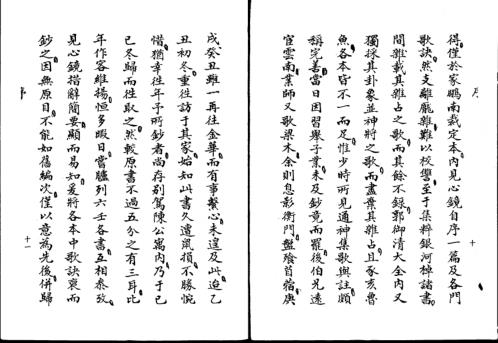 序
得僅於家鵬南裁定本內見心鏡自序一篇及各門
歌訣然支離龐雜難以校讐至于集粹銀河棹諸書
間雜載其雜占之歌而其餘不錄郭御清大全內又
獨採其卦象並神將之歌而盡棄其雜占且豕亥魯
魚各本皆不一而足惟少時所見通神集歌與註頗
稱完善當日因習舉子業未及鈔竟而罷後伯兄遠
宦雲南業師又歌梁木余則息影衡門盤飧苜蓿庚
十
戌癸丑雖一再往金華而有事繫心未遑及此迨乙
丑初冬重往訪于其家始知此書久遭風損不勝惋
惜猶幸往年子所鈔者尚存別駕陳公寓內乃于己
己冬歸而往取之然較原書不過五分之有三耳比
年作客維揚恒多暇日嘗臚列六壬各書互相叅攷
見心鏡措辭簡要顯而易知爰將各本中歌訣裒而
鈔之因無原目不能如舊編次僅以意為先後併歸
序
十一